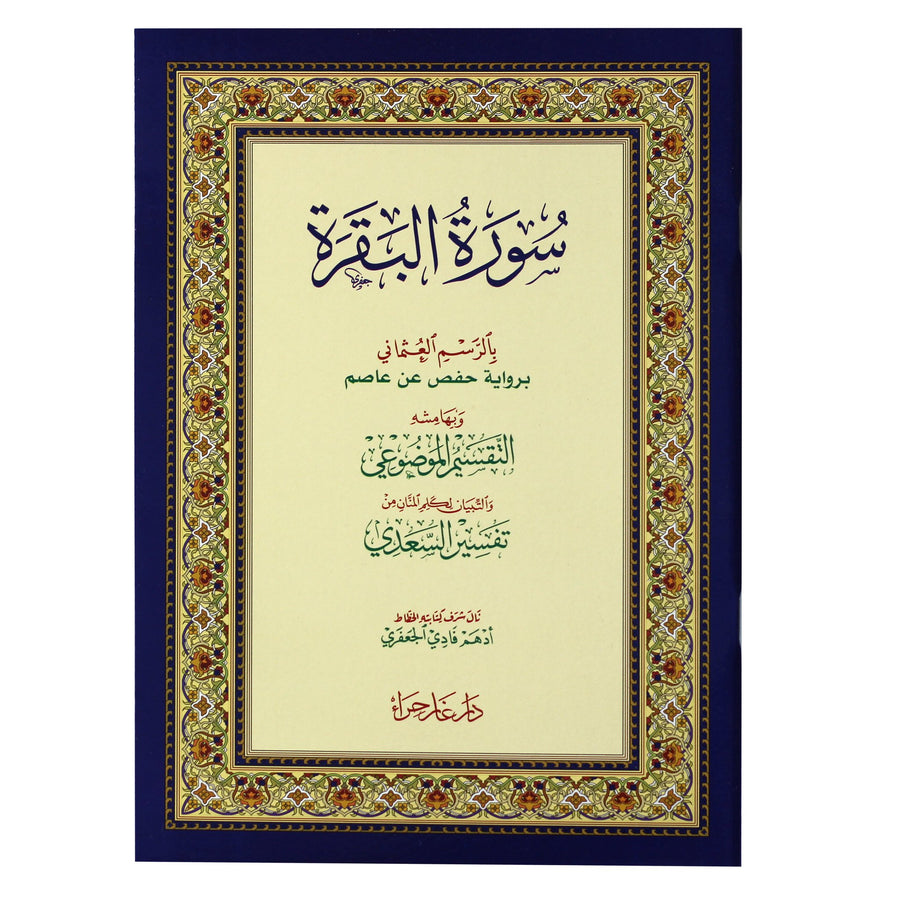 سُورَةُ البَقَرَة
جعفري
بِالرَّسْمِ العُثْمَاني
برواية حفص عن عاصم
وَبِهَامِشِهِ
التَّقْسِيْمُ المَوْضُوْعِيْ
وَالتِّبيَان لِكَلِمِ المَنَّانِ مِنْ
تَفْسِيْرِ السَّعْدِيْ
نَالَ شرَفَ كِتَابَتِهِ الخَطَّاط
أدْهَمْ فَادِيْ الجَعْفَرِيْ
دَارُ غَارِ حِرَاء